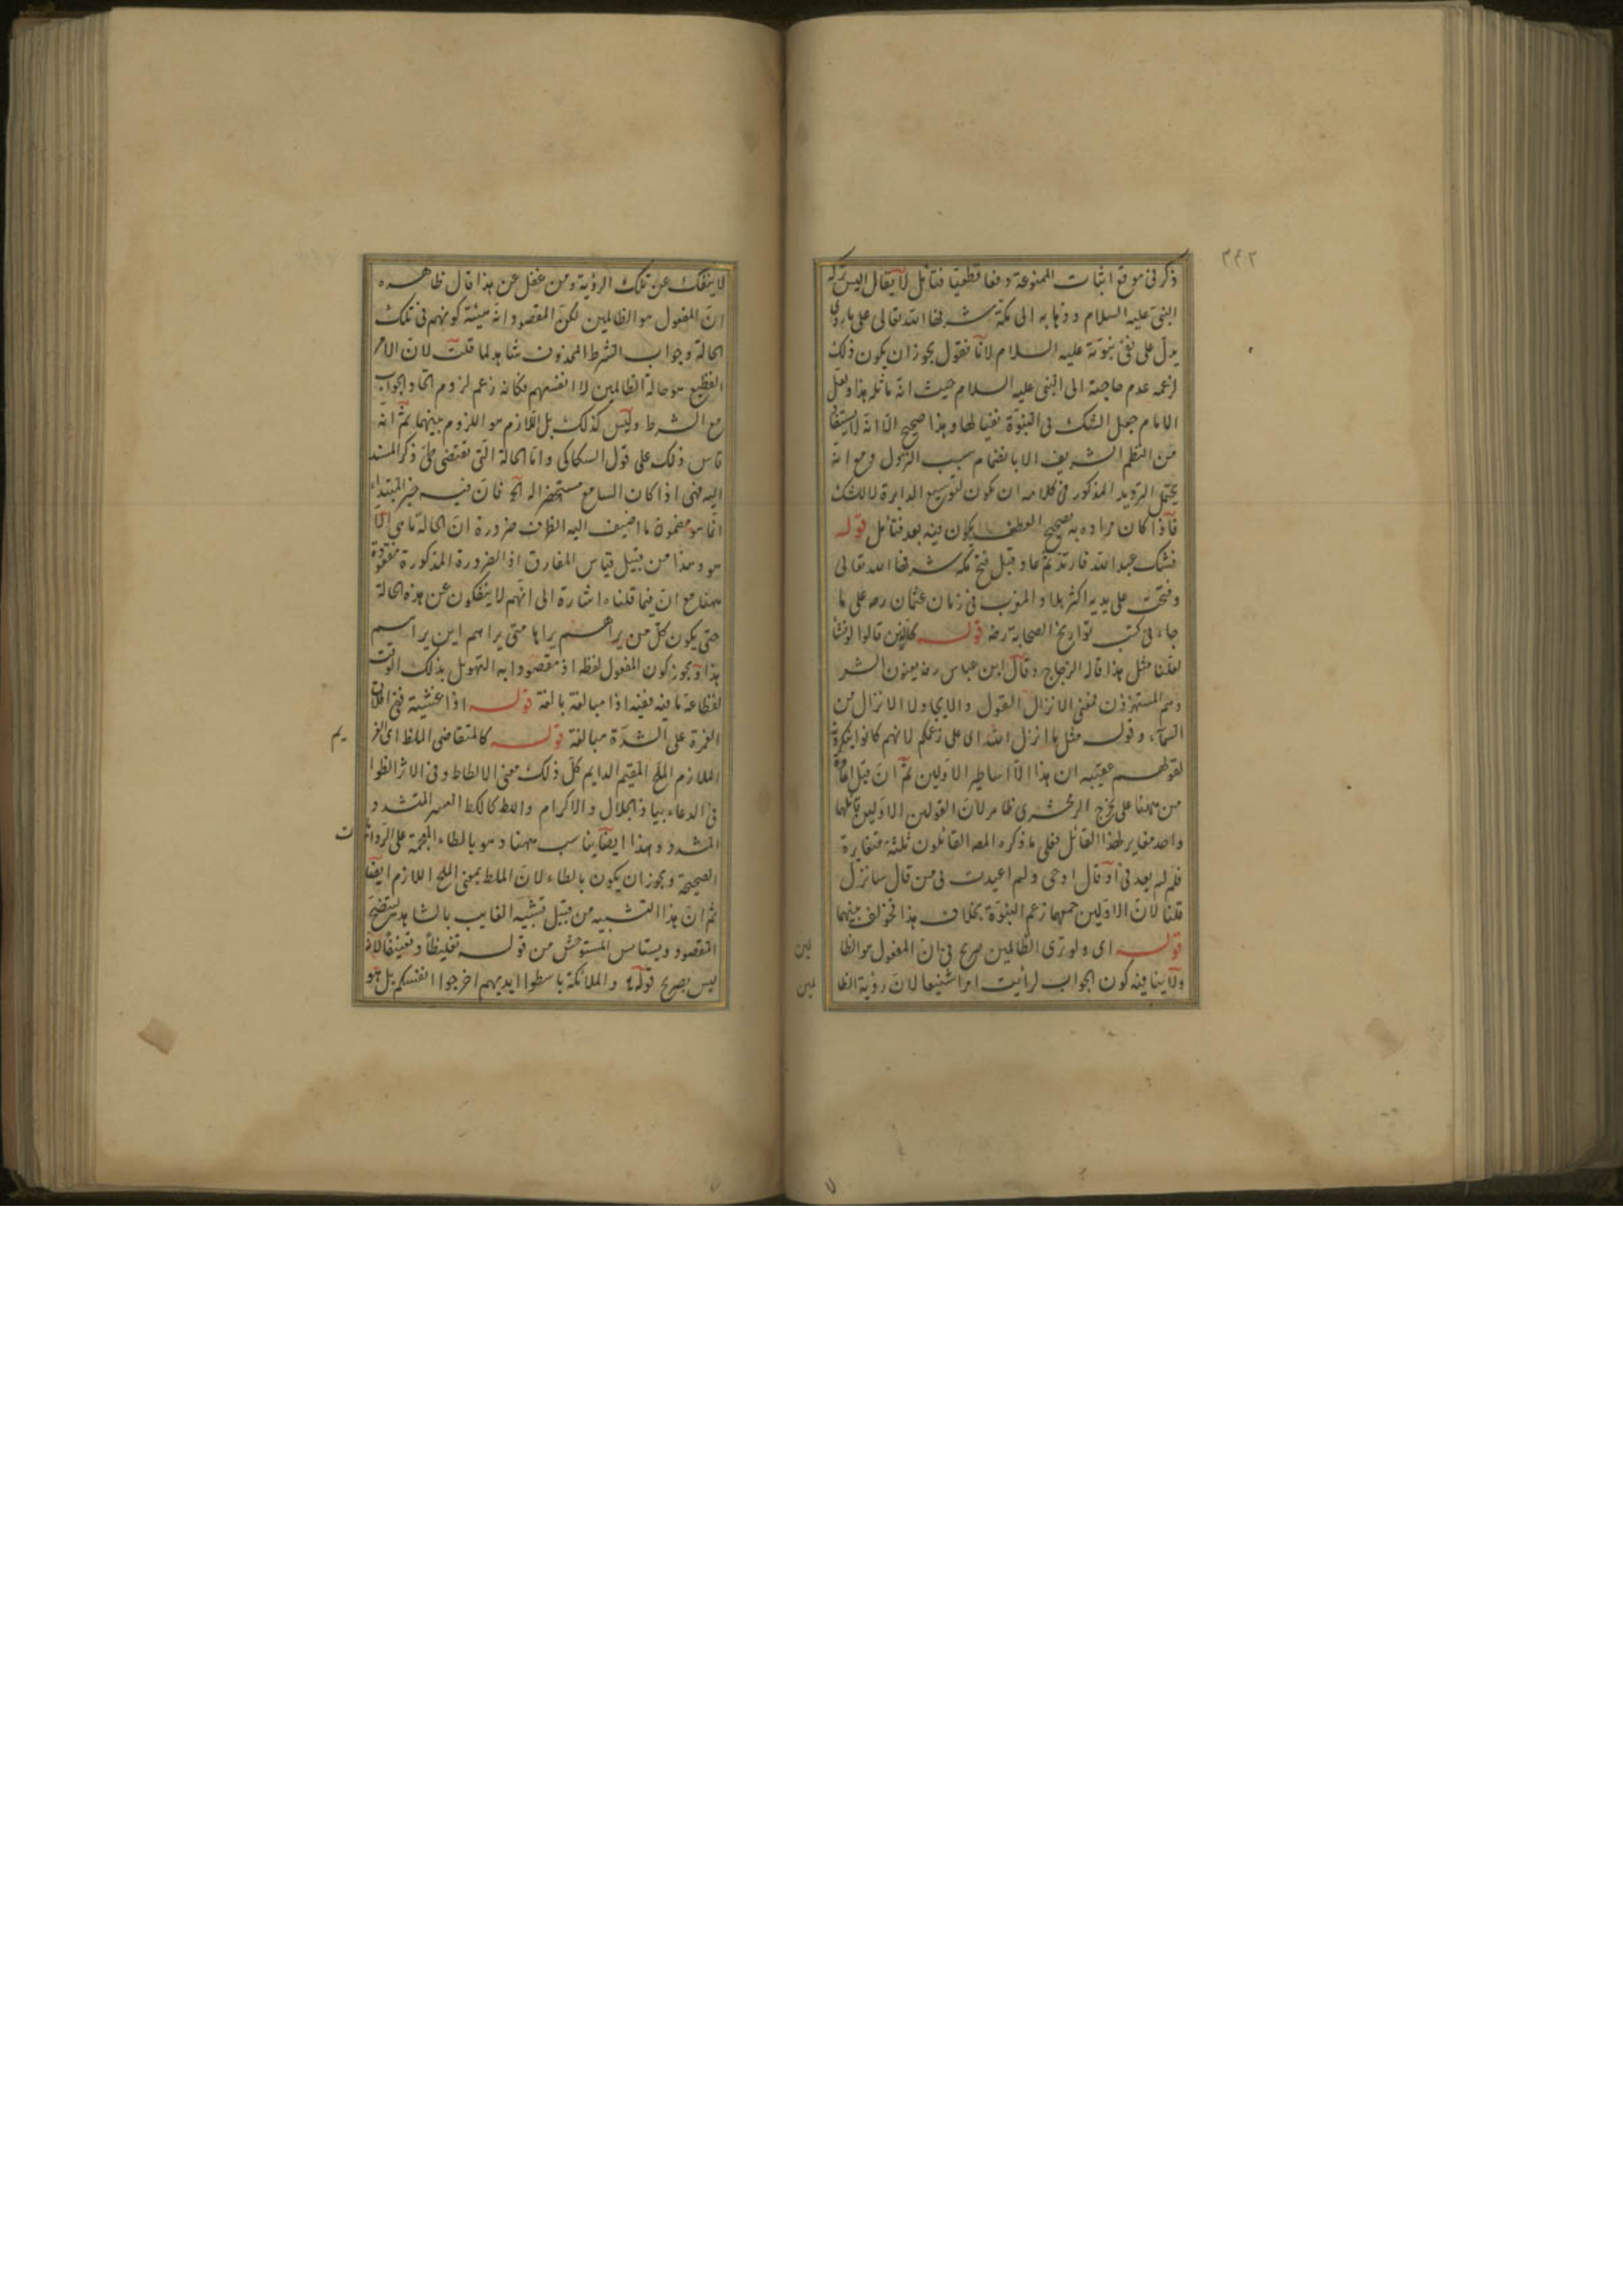 ٣٤٢
ذكر في موقع اثبات الممنوعة دفعا قطعيا فتأمل لا يقال اليس تركه
النبي عليه السلام وذهابه الى مكة شرفها الله تعالى على ما روى
يدل على نفي نبوته عليه السلام لانا نقول يجوز ان يكون ذلك
لزعمه عدم حاجته الى النبي عليه السلام حيث انه ماثله هذا ولعل
الامام جعل الشك في النبوة نفيا لها وهذا صحيح الا انه لا يستفاد
من النظم الشريف الا بانضمام سبب النزول ومع انه
يحتمل الترديد المذكور في كلامه ان تكون لتوسيع الدايرة لا للشك
فاذا كان مراده به تصحيح العطف يكون فيه بعد فتأمل قوله
فشك عبد الله فارتد ثم عاد قبل فتح مكة شرفها الله تعالى
وفتحت على يديه اكثر بلاد المغرب في زمان عثمان رضه على ما
جاء في كتب تواريخ الصحابة رضه قوله كالذين قالوا لو نشا
لقلنا مثل هذا قاله الزجاج وقال ابن عباس رضه يعنون الشر
وهم المستهزؤن فمعنى الانزال القول والاتي ولا الانزال من
السماء وقوله مثل ما انزل الله اى على زعمكم لانهم كانوا ينكرونه
لقولهم عقيبه ان هذا الا اساطير الاولين ثم ان قبل اعادة
من ههنا على تخرج الزمخشرى ظاهر لان القولين الاولين قائلهما
واحد مغاير لهذا القائل فعلى ما ذكره المصه القائلون ثلثة متغايرة
فلم لم يعد في او قال اوحى ولم اعيدت في من قال سانزل
قلنا لان الاولين جمعهما زعم النبوة بخلاف هذا فخولف بينهما
قوله اى ولو ترى الظالمين صريح في ان المفعول هو الظا لمين
ولا ينافيه كون الجواب لرأيت امرا شنيعا لان رؤية الظا لمين
لا ينفك عن تلك الرؤية ومن غفل عن هذا قال ظاهره
ان المفعول هو الظالمين لكن المقصود انه هيئة كونهم في تلك
الحالة وجواب الشرط المحذوف شاهد لما قلت لان الامر
الفظيع هو حالة الظالمين لا انفسهم فكانه زعم لزوم اتحاد الجواب
مع الشرط وليس كذلك بل اللازم هو اللزوم بينهما ثم انه
قاس ذلك على قول السكاكى واما الحالة التي تقتضى طى ذكر المسند
اليه فهى اذا كان السامع مستحضرا له الخ فان فيه خبر المبتداء
انما هو مضمون ما اضيف اليه الظرف ضرورة ان الحالة ما هى الا
هو وهذا من قبيل قياس المفارق اذ الضرورة المذكورة مفقودة
ههنا مع ان فيما قلناه اشارة الى انهم لا ينفكون عن هذه الحالة
حتى يكون كل من يراهم يراها متى يراهم اين يراهم
هذا ويجوز كون المفعول لفظه اذ مقصودا به التهويل بذلك الوقت
لفظاعة ما فيه ففيه اذا مبالغة بالغة قوله اذا غشيته ففى اطلاق
الغمرة على الشدة مبالغة قوله كالمتقاضى الملظ اى الغر يم
الملازم الملح المقيم الدايم كل ذلك معنى الالظاظ وفي الاثر الظوا
في الدعاء بيا ذا الجلال والاكرام والظ كالكظ العسر المتشدد
المشدد وهذا ايضا يناسب ههنا وهو بالظاء المعجمة على الروايا ت
الصحيحة ويجوز ان يكون بالطاء لان الملط بمعنى الملح اللازم ايضا
ثم ان هذا التشبيه من قبيل تشبيه الغايب بالشاهد ليتضح
المقصود ويستأنس المستوحش من قوله تغليظا وتعنيفا لانه
ليس بصريح قوله تع والملائكة باسطوا ايديهم اخرجوا انفسكم بل هو